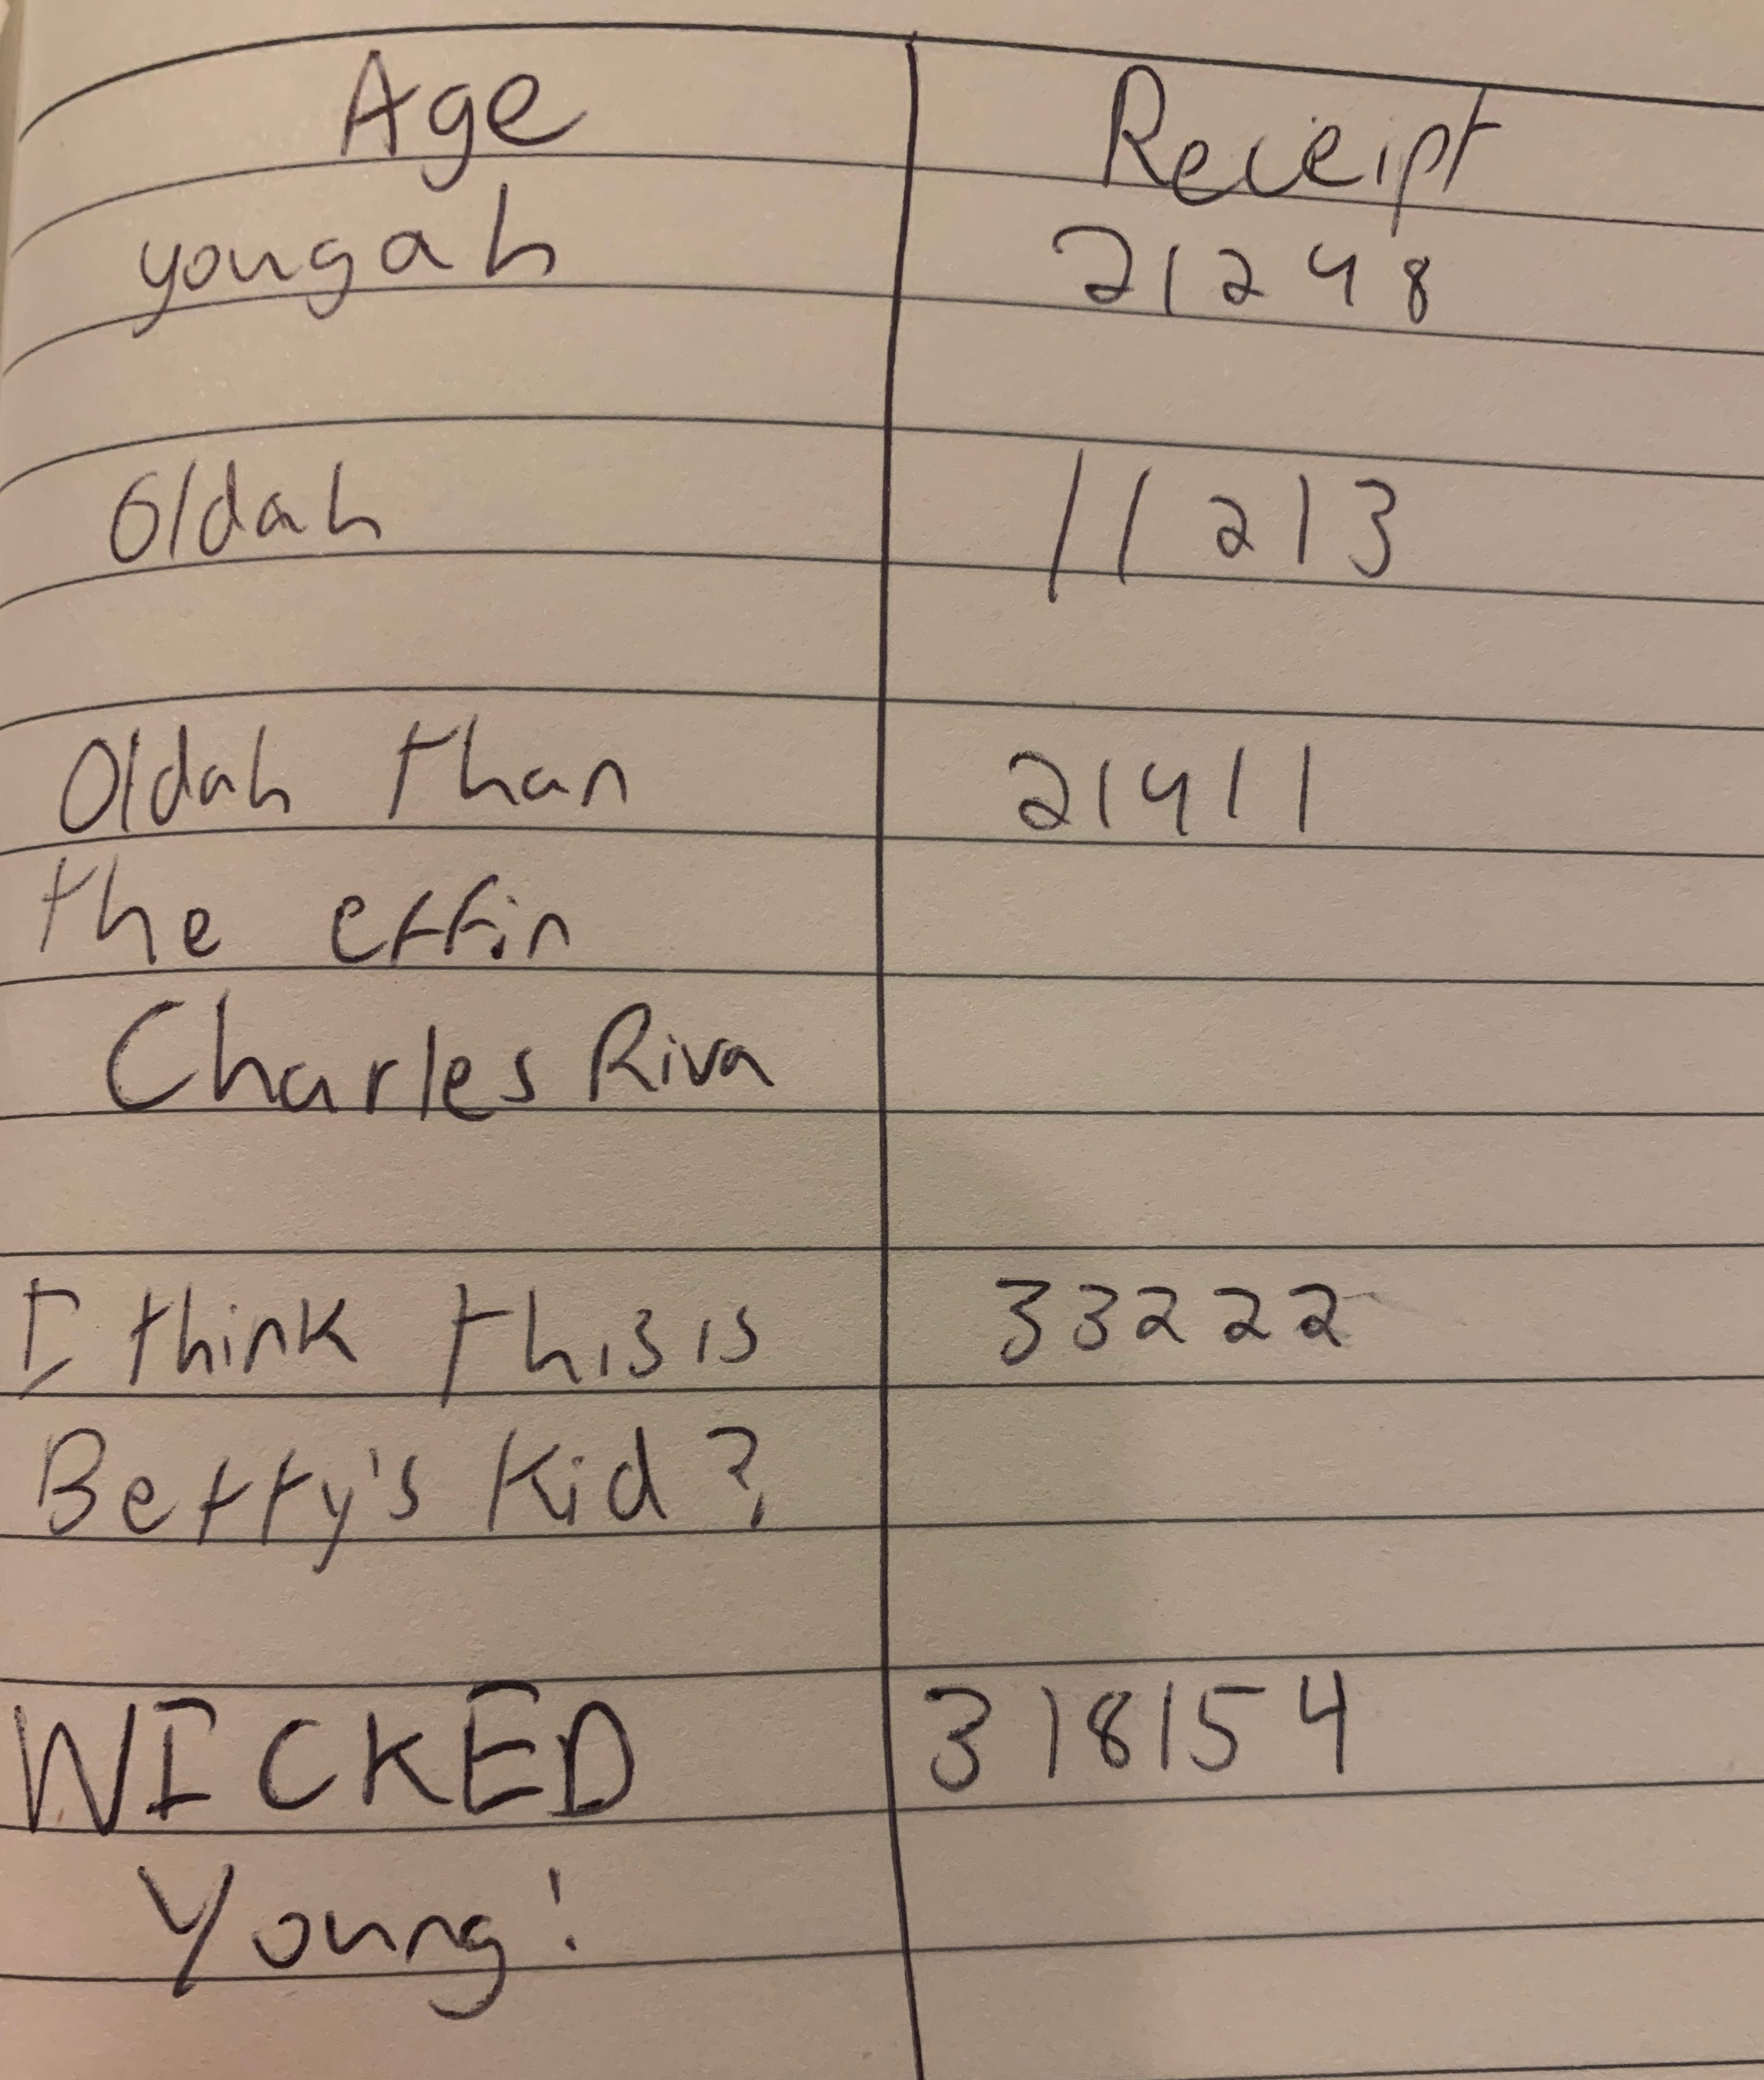 Age Receipt
yougah 21248
Oldah 11213
Oldah than 21411
the effin
Charles Riva
I think this is 33222
Betty's Kid?
WICKED 318154
Young!